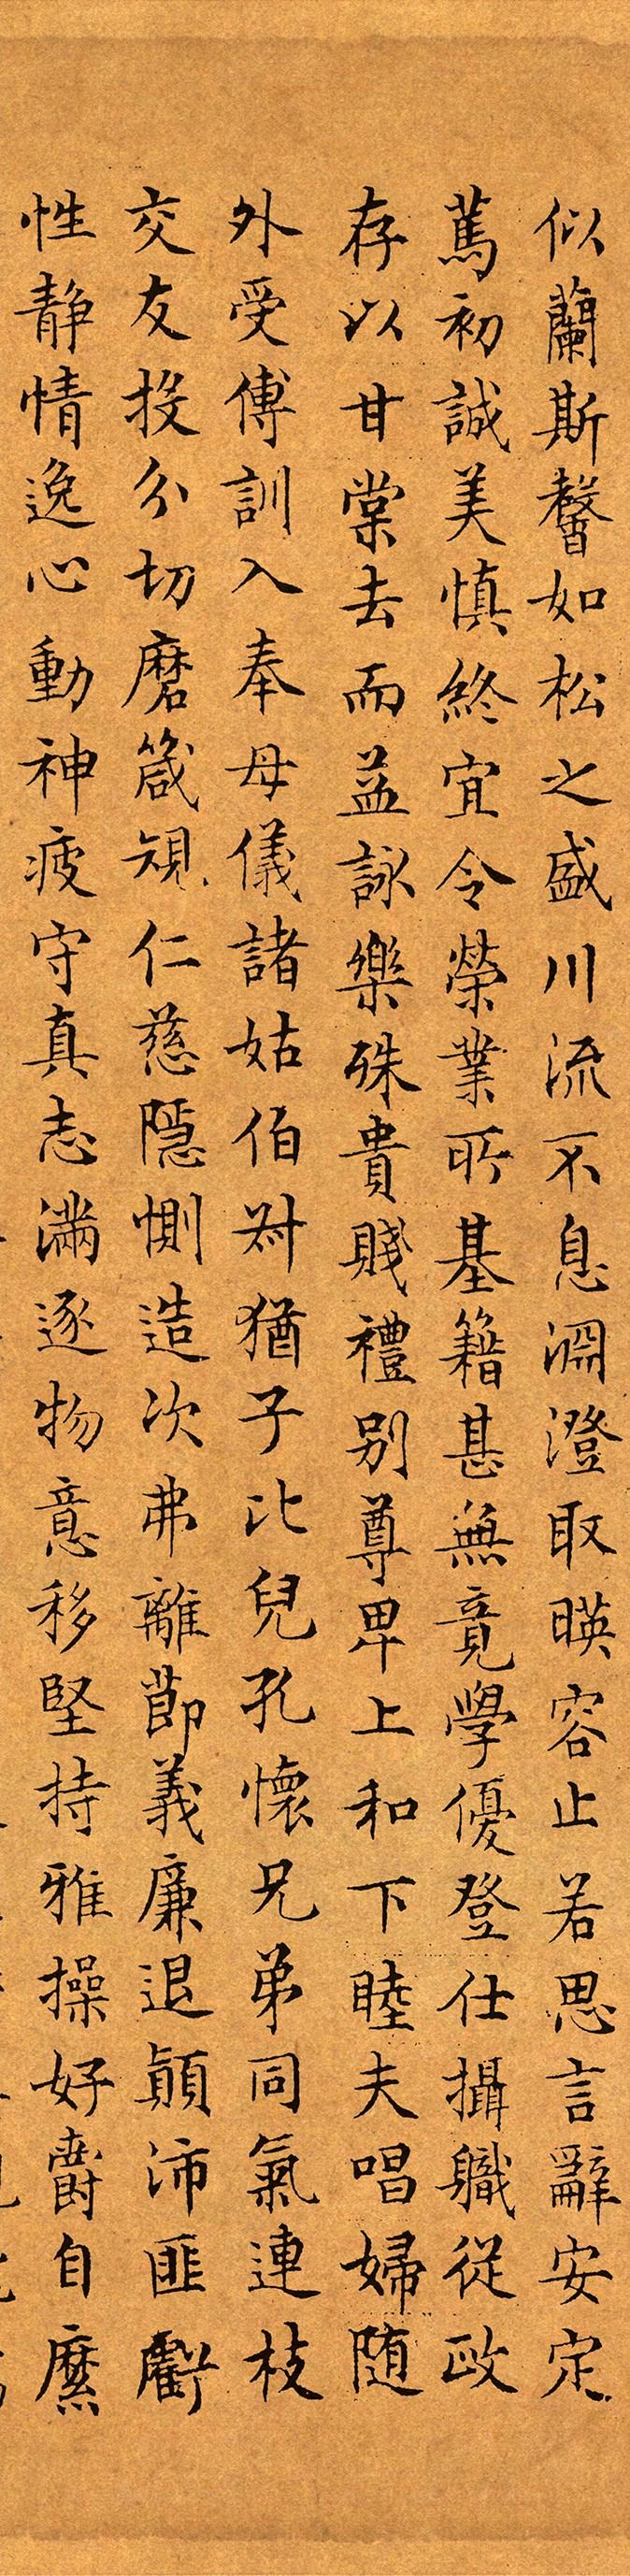 似蘭斯馨如松之盛川流不息淵澄取暎容止若思言辭安定
篤初誠美慎終宜令榮業所基籍甚無竟學優登仕攝職從政
存以甘棠去而益詠樂殊貴賤禮別尊卑上和下睦夫唱婦随
外受傅訓入奉母儀諸姑伯叔猶子比兒孔懷兄弟同氣連枝
交友投分切磨箴規仁慈隱惻造次弗離節義廉退顛沛匪虧
性静情逸心動神疲守真志滿逐物意移堅持雅操好爵自縻